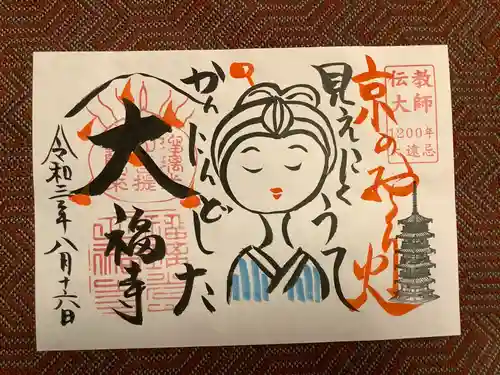 京のおくり火
伝教
大師
1200年
大遠忌
見えにくうて
かんにんどした
大福寺
令和三年八月十六日